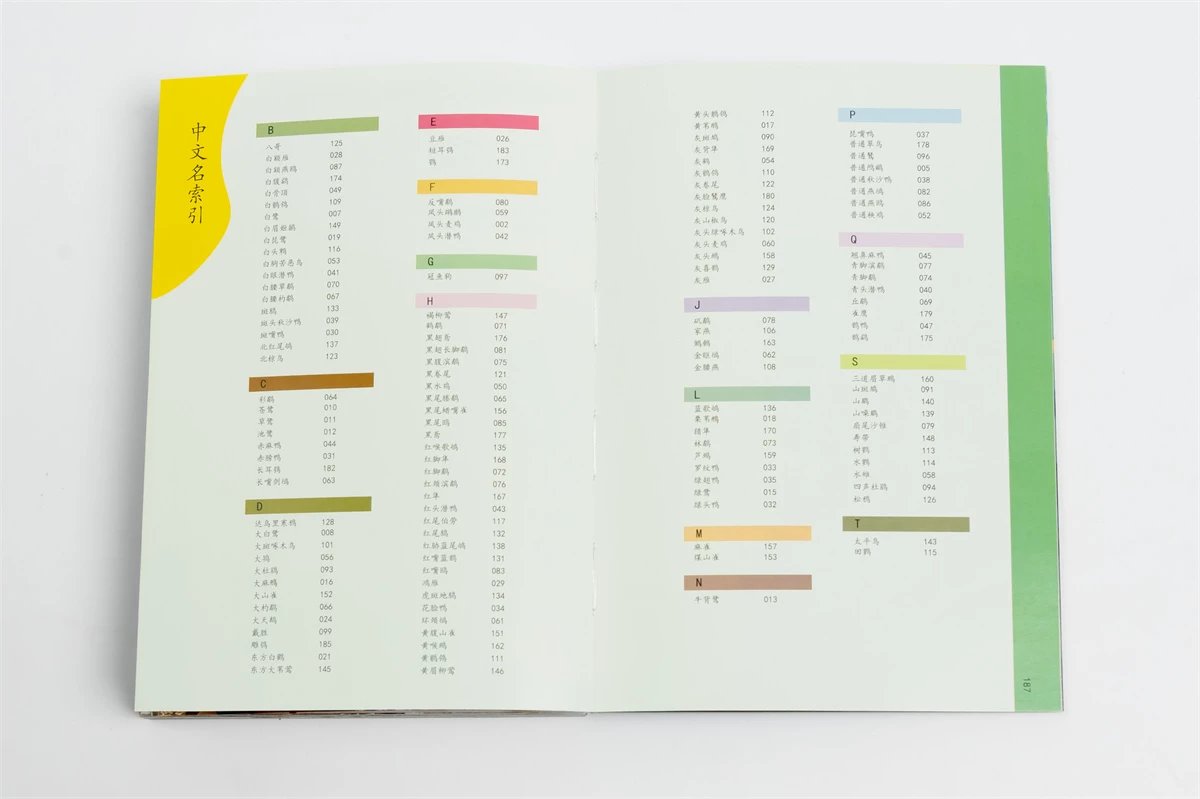 中文名索引
B
八哥 125
白额雁 028
白额燕鸥 087
白腹鹞 174
白骨顶 049
白鹡鸰 109
白鹭 007
白眉姬鹟 149
白琵鹭 019
白头鹎 116
白胸苦恶鸟 053
白眼潜鸭 041
白腰草鹬 070
白腰杓鹬 067
斑鸫 133
斑头秋沙鸭 039
斑嘴鸭 030
北红尾鸲 137
北椋鸟 123
C
彩鹬 064
苍鹭 010
草鹭 011
池鹭 012
赤麻鸭 044
赤膀鸭 031
长耳鸮 182
长嘴剑鸻 063
D
达乌里寒鸦 128
大白鹭 008
大斑啄木鸟 101
大鸨 056
大杜鹃 093
大麻鳽 016
大山雀 152
大杓鹬 066
大天鹅 024
戴胜 099
雕鸮 185
东方白鹳 021
东方大苇莺 145
E
豆雁 026
短耳鸮 183
鹗 173
F
反嘴鹬 080
凤头䴙䴘 059
凤头麦鸡 002
凤头潜鸭 042
G
冠鱼狗 097
H
褐柳莺 147
鹤鹬 071
黑翅鸢 176
黑翅长脚鹬 081
黑腹滨鹬 075
黑卷尾 121
黑水鸡 050
黑尾塍鹬 065
黑尾蜡嘴雀 156
黑尾鸥 085
黑鸢 177
红喉歌鸲 135
红脚隼 168
红脚鹬 072
红颈滨鹬 076
红隼 167
红头潜鸭 043
红尾伯劳 117
红尾鸫 132
红胁蓝尾鸲 138
红嘴蓝鹊 131
红嘴鸥 083
鸿雁 029
虎斑地鸫 134
花脸鸭 034
环颈鸻 061
黄腹山雀 151
黄喉鹀 162
黄鹡鸰 111
黄眉柳莺 146
黄头鹡鸰 112
黄苇鳽 017
灰斑鸠 090
灰背隼 169
灰鹤 054
灰鹡鸰 110
灰卷尾 122
灰脸鵟鹰 180
灰椋鸟 124
灰山椒鸟 120
灰头绿啄木鸟 102
灰头麦鸡 060
灰头鹀 158
灰喜鹊 129
灰雁 027
J
矶鹬 078
家燕 106
鹪鹩 163
金眶鸻 062
金腰燕 108
L
蓝歌鸲 136
栗苇鳽 018
猎隼 170
林鹬 073
芦鹀 159
罗纹鸭 033
绿翅鸭 035
绿鹭 015
绿头鸭 032
M
麻雀 157
煤山雀 153
N
牛背鹭 013
P
琵嘴鸭 037
普通草鸟 178
普通鵟 096
普通鸬鹚 005
普通秋沙鸭 038
普通燕鸻 082
普通燕鸥 086
普通秧鸡 052
Q
翘鼻麻鸭 045
青脚滨鹬 077
青脚鹬 074
青头潜鸭 040
丘鹬 069
雀鹰 179
鹊鸭 047
鹊鹞 175
S
三道眉草鹀 160
山斑鸠 091
山鹛 140
山噪鹛 139
扇尾沙锥 079
寿带 148
树鹨 113
水鹨 114
水雉 058
四声杜鹃 094
松鸦 126
T
太平鸟 143
田鹨 115
187